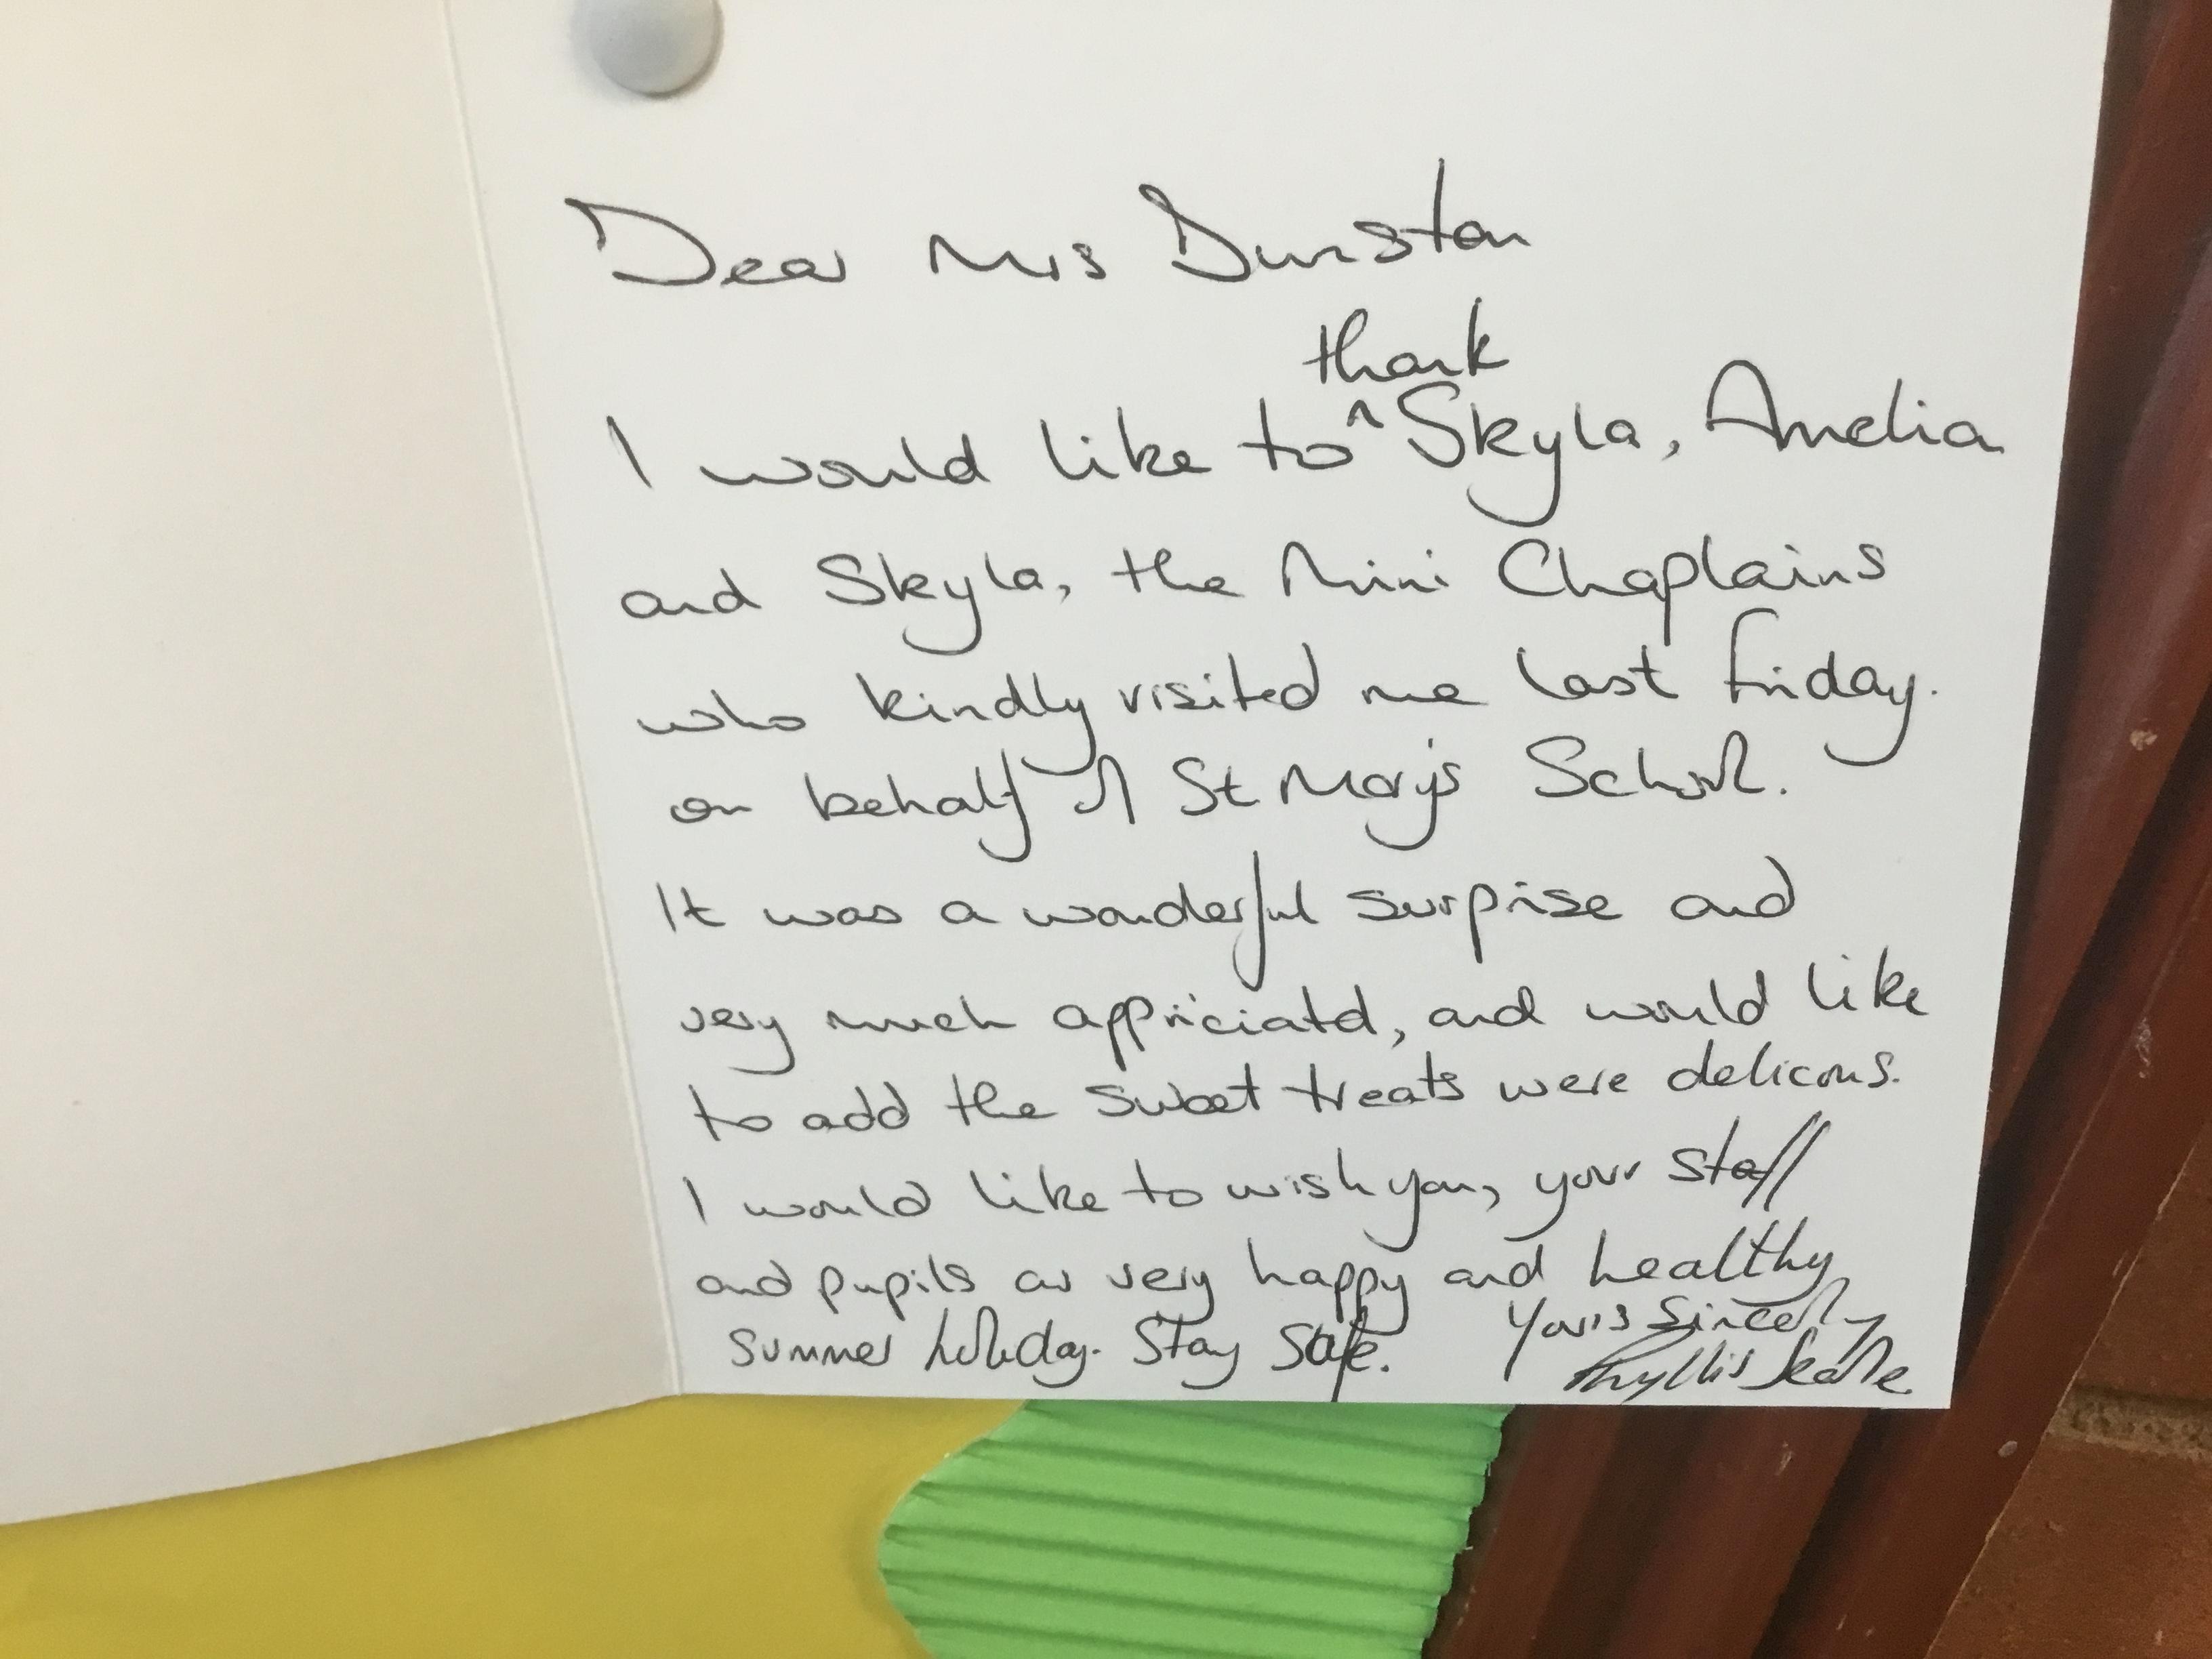 Dear Mrs Dunston
thank
I would like to ^ Skyla, Amelia
and Skyla, the Mini Chaplains
who kindly visited me last friday.
on behalf of St Mary's School.
It was a wonderful surprise and
very much appriciatd, and would like
to add the sweet treats were delicous.
I would like to wish you, your staff
and pupils a very happy and healthy
summer holiday. Stay Safe. Yours Sincerly
Phyllis